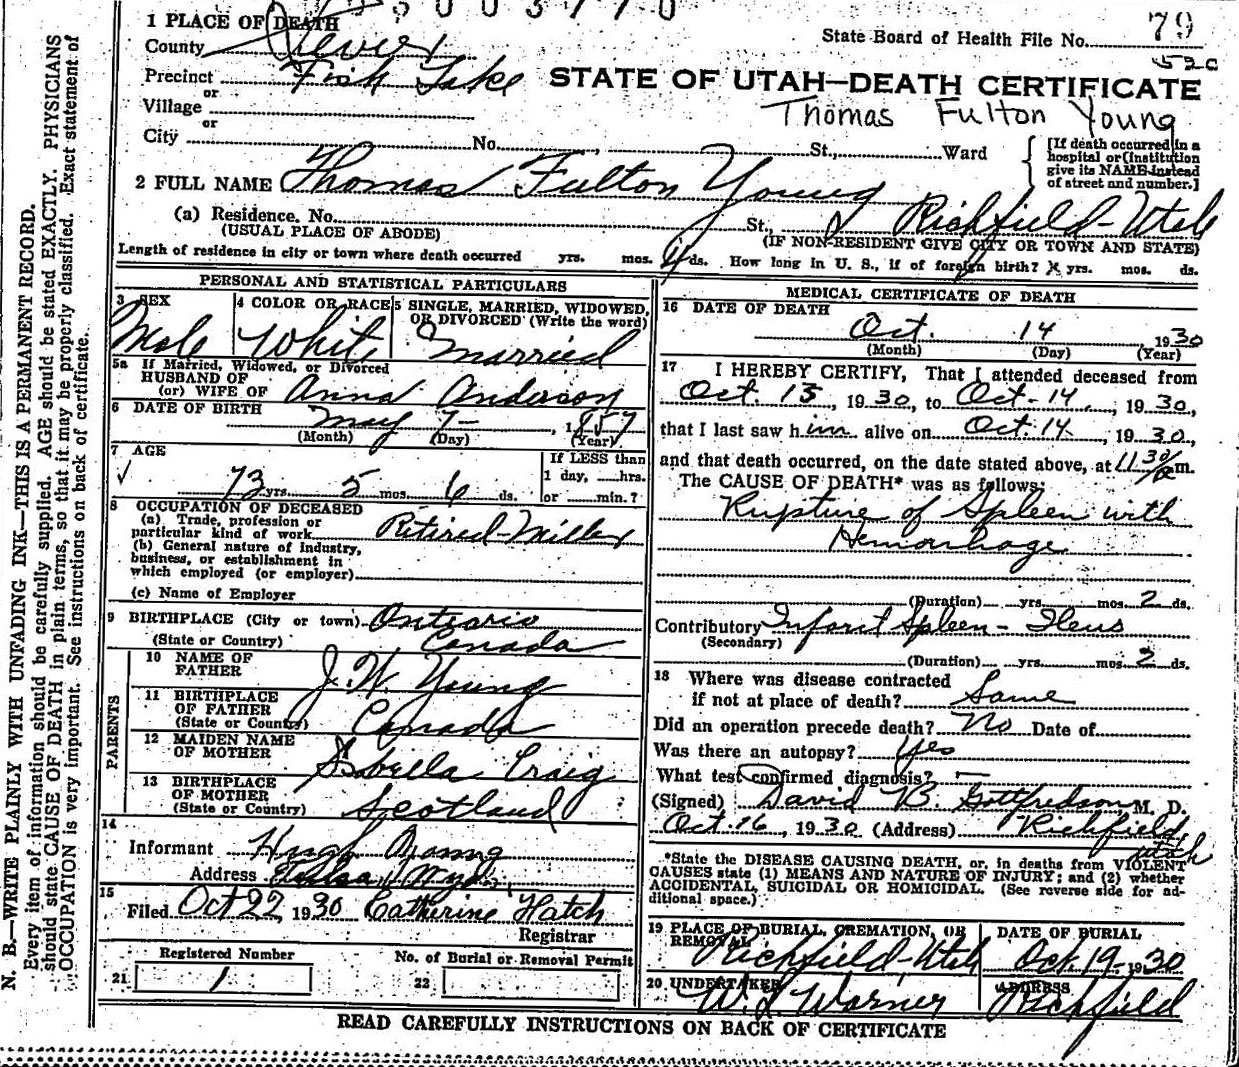 1 PLACE OF DEATH
State Board of Health File No. 79
County Sevier
Precinct Fish Lake
STATE OF UTAH—DEATH CERTIFICATE
or
Village
Thomas Fulton Young
or
City No. St., Ward
[If death occurred in a
hospital or institution
give its NAME instead
of street and number.]
2 FULL NAME Thomas Fulton Young
(a) Residence. No. St., Richfield-Utah
(USUAL PLACE OF ABODE) (IF NON-RESIDENT GIVE CITY OR TOWN AND STATE)
Length of residence in city or town where death occurred yrs. mos. 4 ds. How long in U. S., if of foreign birth? x yrs. mos. ds.
PERSONAL AND STATISTICAL PARTICULARS
3 SEX
Male
4 COLOR OR RACE
White
5 SINGLE, MARRIED, WIDOWED,
OR DIVORCED (Write the word)
Married
5a If Married, Widowed, or Divorced
HUSBAND OF
(or) WIFE OF Anna Anderson
6 DATE OF BIRTH May 7- , 1857
(Month) (Day) (Year)
7 AGE
If LESS than
1 day, hrs.
73 yrs. 5 mos. 6 ds. or min.?
8 OCCUPATION OF DECEASED
(a) Trade, profession or
particular kind of work Retired-Miller
(b) General nature of industry,
business, or establishment in
which employed (or employer)
(c) Name of Employer
9 BIRTHPLACE (City or town) Onterio
(State or Country) Canada
PARENTS
10 NAME OF
FATHER J. W. Young
11 BIRTHPLACE
OF FATHER
(State or Country) Canada
12 MAIDEN NAME
OF MOTHER Isbella Craig
13 BIRTHPLACE
OF MOTHER
(State or Country) Scotland
14
Informant Hugh Young
Address Wyo.
15
Filed Oct 22, 1930 Catherine Hatch
Registrar
Registered Number
21 1
No. of Burial or Removal Permit
22
MEDICAL CERTIFICATE OF DEATH
16 DATE OF DEATH
Oct. 14 1930
(Month) (Day) (Year)
17 I HEREBY CERTIFY, That I attended deceased from
Oct. 13, 1930, to Oct-14, 1930,
that I last saw him alive on Oct. 14, 1930,
and that death occurred, on the date stated above, at 11 30/ m.
The CAUSE OF DEATH* was as follows:
Rupture of Spleen with
Hemorrhage
(Duration) yrs. mos. 2 ds.
Contributory Infarct Spleen - Ileus
(Secondary)
(Duration) yrs. mos. 2 ds.
18 Where was disease contracted
if not at place of death? Same
Did an operation precede death? No Date of
Was there an autopsy? Yes
What test confirmed diagnosis? —
(Signed) David B. Gottfredson, M. D.
Oct. 16, 1930 (Address) Richfield,
Utah
*State the DISEASE CAUSING DEATH, or, in deaths from VIOLENT
CAUSES state (1) MEANS AND NATURE OF INJURY; and (2) whether
ACCIDENTAL, SUICIDAL OR HOMICIDAL. (See reverse side for ad-
ditional space.)
19 PLACE OF BURIAL, CREMATION, OR
REMOVAL
Richfield, Utah
DATE OF BURIAL
Oct. 19-1930
20 UNDERTAKER
W. L. Warner
ADDRESS
Richfield
READ CAREFULLY INSTRUCTIONS ON BACK OF CERTIFICATE
N. B.—WRITE PLAINLY WITH UNFADING INK—THIS IS A PERMANENT RECORD.
Every item of information should be carefully supplied. AGE should be stated EXACTLY. PHYSICIANS
should state CAUSE OF DEATH in plain terms, so that it may be properly classified. Exact statement of
OCCUPATION is very important. See instructions on back of certificate.